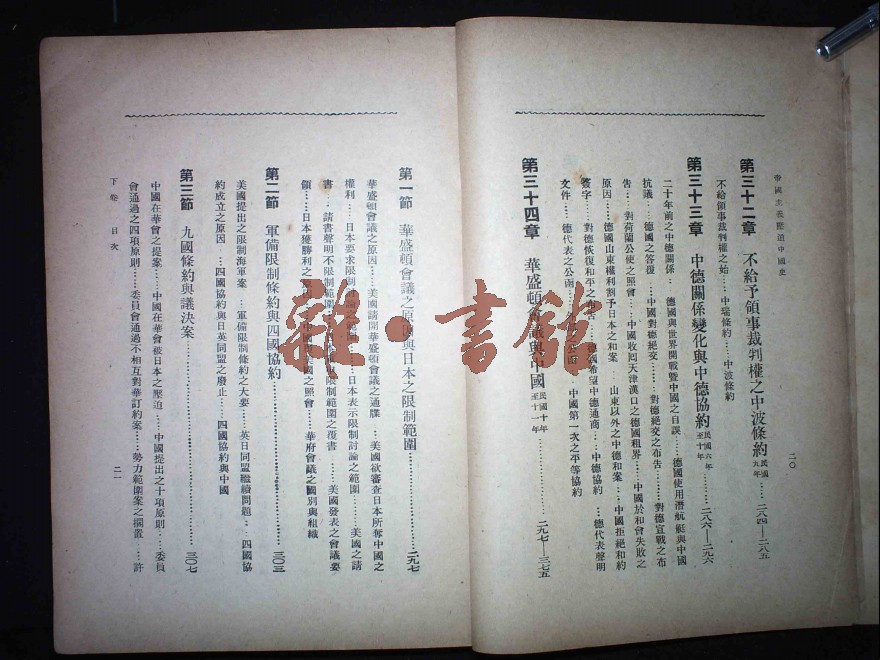 帝國主義壓迫中國史
二〇
第三十二章 不給予領事裁判權之中波條約 民國九年……二八四—二八五
不給領事裁判權之始……中瑞條約……中波條約
第三十三章 中德關係變化與中德協約 民國六年至十年……二八六—二九六
二十年前之中德關係……德國與世界開戰暨中國之自誤……德國使用潛航艇與中國
抗議……德國之答復……中國對德絕交……對德絕交之布告……對德宣戰之布
告……對荷蘭公使之照會……中國收回天津漢口之德國租界……中國於和會失敗之
原因……德國山東權利割予日本之和案……山東以外之中德和案……中國拒絕和約
簽字……對德恢復和平之布告……德國希望中德通商……中德協約……德代表聲明
文件……德代表之公函……之公函……中國第一次之平等協約
第三十四章 華盛頓會議與中國 民國十年至十一年……二九七—三七五
第一節 華盛頓會議之原因與日本之限制範圍……二九七
華盛頓會議之原因……美國請開華盛頓會議之通牒……美國欲審查日本所奪中國之
權利……日本要求限制討論之範圍……日本表示限制討論之範圍……美國之請
書……請書聲明不限制範圍……限制範圍之覆書……美國發表之會議要
領……日本獲勝利之原因……中國之照會……華府會議之國別與組織
第二節 軍備限制條約與四國協約……三〇三
美國提出之限制海軍案……軍備限制條約之大要……英日同盟繼續問題……四國協
約成立之原因……四國協約與日英同盟之廢止……四國協約與中國
第三節 九國條約與議決案……三〇七
中國在華會之提案……中國在華會被日本之壓迫……中國提出之十項原則……委員
會通過之四項原則……委員會通過不相互對華訂約案……勢力範圍案之擱置……許
下卷 目次
二一
雜·書館